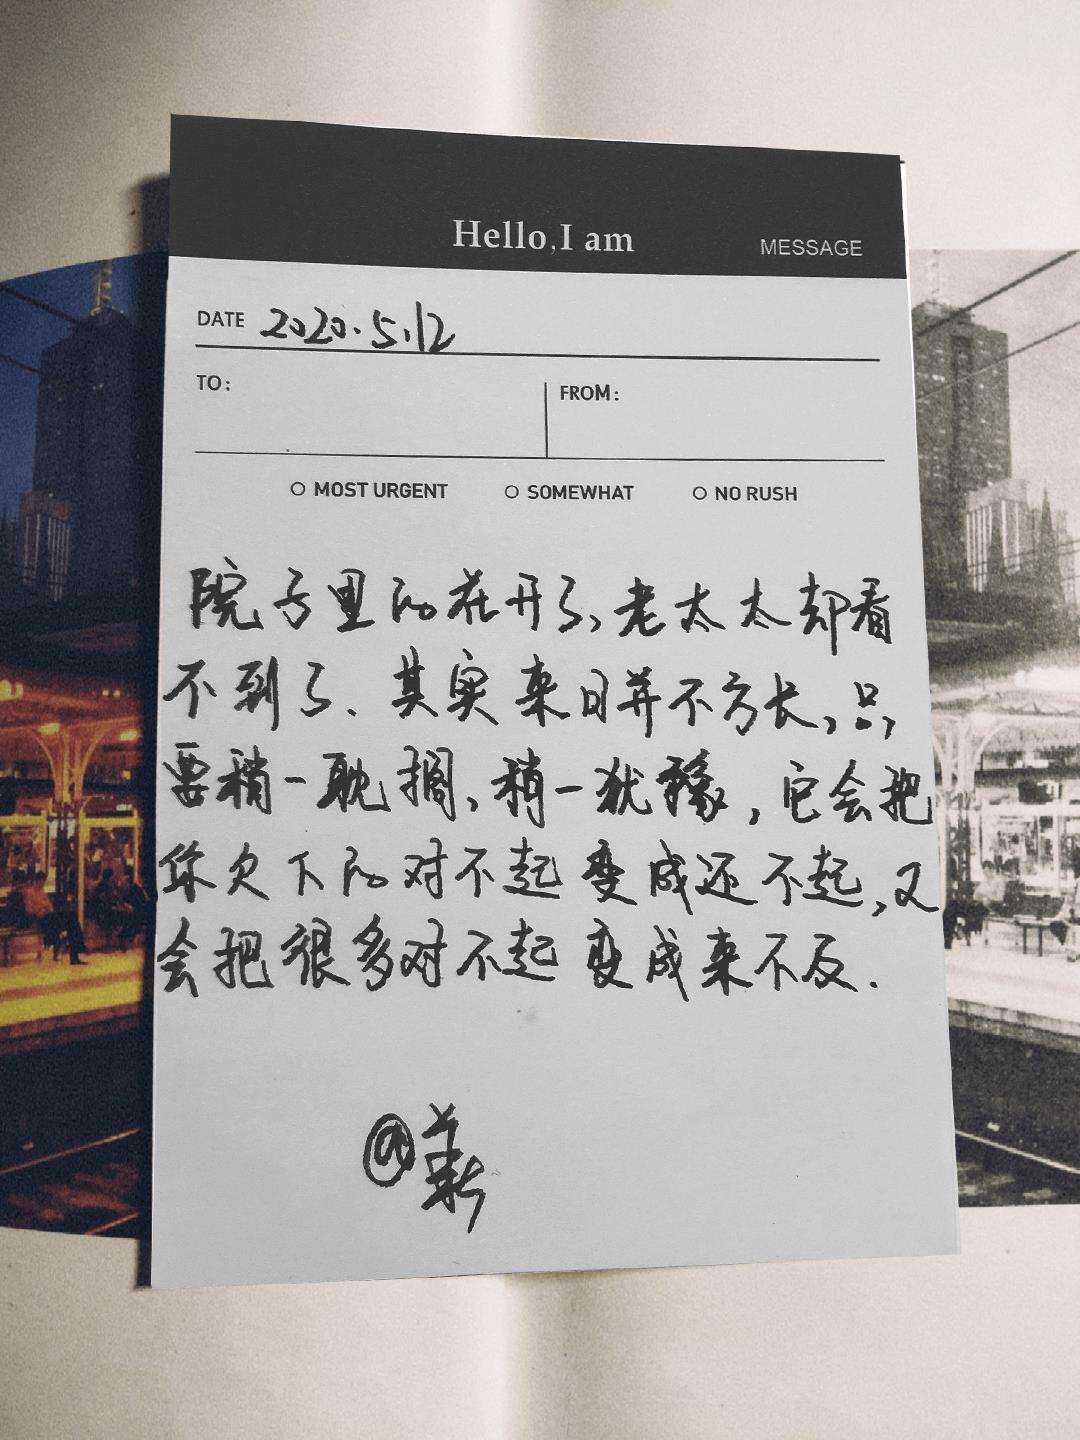 Hello,I am
MESSAGE
DATE 2020.5.12
TO:
FROM:
MOST URGENT
SOMEWHAT
NO RUSH
院子里的花开了,老太太却看
不到了、其实来日并不方长,只,
要稍一耽搁,稍一犹豫,它会把
你欠下的对不起变成还不起,又
会把很多对不起变成来不及.
@